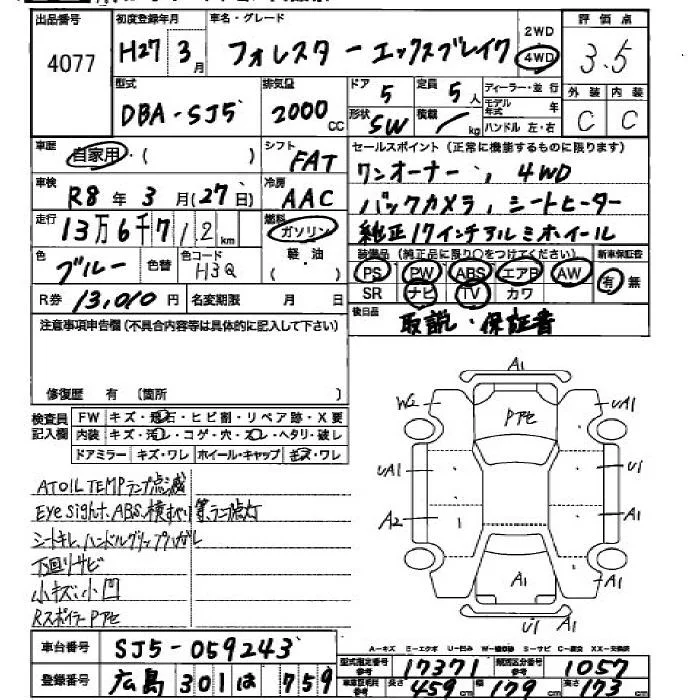 出品番号 4077
初度登録年月 H27 3月
車名・グレード フォレスター エックスブレイク
2WD 4WD
評価点 3.5
外装 内装
C C
型式 DBA-SJ5
排気量 2000CC
ドア 5
形状 SW
定員 5人
積載 / kg
ディーラー・並行
モデル年式 年
ハンドル 左・右
車歴 自家用・( )
シフト FAT
車検 R8年3月(27日)
冷房 AAC
走行 13万6千712km
燃料 ガソリン 軽・油 ( )
色 ブルー 色替
色コード H3Q
R券 13,010円 名変期限 月 日
セールスポイント(正常に機能するものに限ります)
ワンオーナー, 4WD
バックカメラ, シートヒーター
純正17インチアルミホイール
装備品(純正品に限り○をつけてください) 新車保証書
PS PW ABS エアB AW 有 無
SR ナビ TV カワ
後日品 取説・保証書
注意事項申告欄(不具合内容等は具体的に記入して下さい)
修復歴 有 (箇所 )
検査員記入欄
FW キズ・飛石・ヒビ割・リペア跡・X要
内装 キズ・汚レ・コゲ・穴・スレ・ヘタリ・破レ
ドアミラー キズ・ワレ ホイール・キャップ キズ・ワレ
ATOIL TEMPランプ点滅
Eye Sight、ABS、横すべり等、ランプ点灯
シートキレ、ハンドルグリップハガレ
下回りサビ
小キズ、小凹
RスポイラーPアセ
A1
W2
Pアセ
UA1
UA1
U1
A2
A1
A1
A1
U1
A1
A-キズ E-エクボ U-凹み W-補修跡 S-サビ C-腐食 XX-交換済
車台番号 SJ5-059243
登録番号 広島 301 は 759
型式指定番号 参考 17371
類別区分番号 参考 1057
車車証明用 参考 長さ 459cm 幅 179cm 高さ 173cm